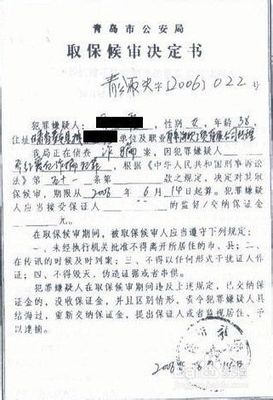 青岛市公安局
取保候审决定书
[2006]022号
犯罪嫌疑人: 性别 年龄38,
住址 单位及职业
我局正在侦查 诈骗 案,因犯罪嫌疑人
根据《中华人民共和国刑事诉讼
法》第五十一条第 款之规定,决定对其取
保候审,期限从2006年6月14日起算。犯罪嫌疑
人应当接受保证人 的监督/交纳保证金
元。
在取保候审期间,被取保候审人应当遵守下列规定:
一、未经执行机关批准不得离开所居住的市、县;二、
在传讯的时候及时到案;三、不得以任何形式干扰证人作
证;四、不得毁灭、伪造证据或者串供。
犯罪嫌疑人在取保候审期间违反上述规定,已交纳保
证金的,没收保证金,并且区别情形,责令犯罪嫌疑人具
结悔过,重新交纳保证金、提出保证人或者监视居住、予
以逮捕。
2006年6月14日